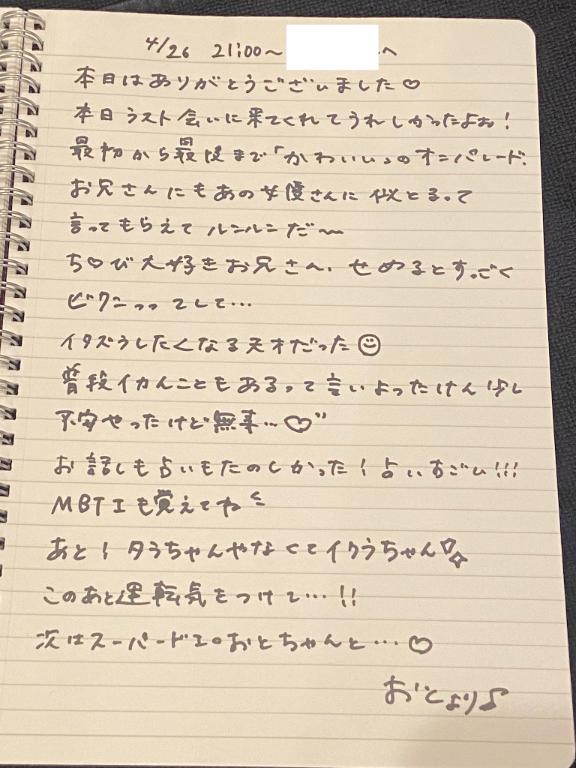 4/26 21:00~ へ
本日はありがとうございました♡
本日ラスト会いに来てくれてうれしかったよぉ!
最初から最後まで「かわいい」のオンパレード.
お兄さんにもあの女優さんに似とるって
言ってもらえてルンルンだ〜
ち♡び大好きお兄さん、せめるとすっごく
ビクンっってして…
イタズラしたくなる天才だった☺
普段イカんこともあるって言いよったけん少し
不安やったけど無事…♡"
お話しも占いもたのしかった!占いすごい!!!
MBTIも覚えてね
あと!タラちゃんやなくてイクラちゃん✧✧
このあと運転気をつけて…!!
次はスーパードエロおとちゃんと…♡
おとより♪